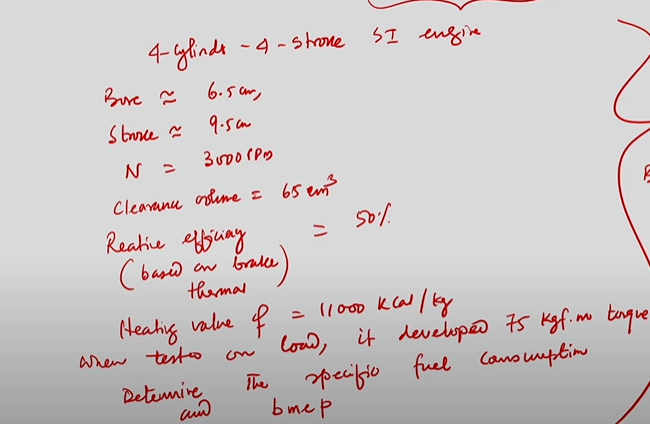 4-cylinder - 4 - stroke SI engine
Bore ≈ 6.5 cm,
Stroke ≈ 9.5 cm
N = 3000 rpm
Clearance volume = 65 cm³
Relative efficiency = 50%
(based on brake
thermal)
Heating value of = 11000 kCal/kg
When tested on load, it developed 75 kgf.m torque
Determine The specific fuel consumption
and bmep